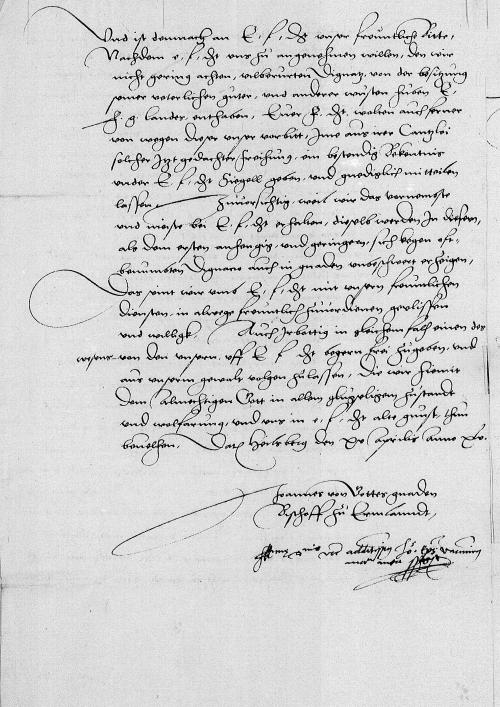 Und ist demnach an E. f. dt unser freuntlich Bitte,
Nachdem e. f. dt uns zu angenehmen willen, den wir
nicht gering achten, vilberurten Ignatz von der besitzung
seiner veterlichen guter, und anderer wusten huben E.
f. g. lander, enthaben, Euer f. dt. wolten auch ferner
von wegen dieser unser vorbitt, Ime aus irer Cantzlei
solcher Itzt gedachter freihung, ein bestendig Bekentnis
under E. f. dt Siegell geben, und gnediglich mitteilen
lassen. Zuversichtig, weil wir das vornemste
und meiste bei E. f. dt erhalten, dieselb werden In diesem,
als dem ersten anhengig und geringern, sich kegen oft
benumbten Ignacio auch in gnaden unbeschwert erzeigen,
Das seint wir umb E. f. dt mit unsern freuntlichen
diensten, in alwege freuntlich zuverdienen gevlissen
und willigk. Auch Irbottig in gleichem fall einen des
wesens von den unsern, uff E. f. dt begern frei zugeben, und
aus unserm gewalt volgen zulassen, Die wir hiemit
dem Almechtigen Gott in allem gluckseligen zustandt
und wolfarung, und uns in e. f. dt alte gunst thun
bevelhen. Dat. Heilsberg den xv aprilis anno xl.
Joannes von Gottes gnaden
Bischoff zu Ermlandt,